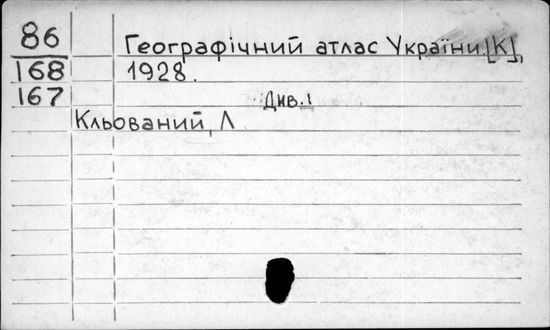 86 Географічний атлас України [К],
168 1928.
167 Див. !
Кльований, Л